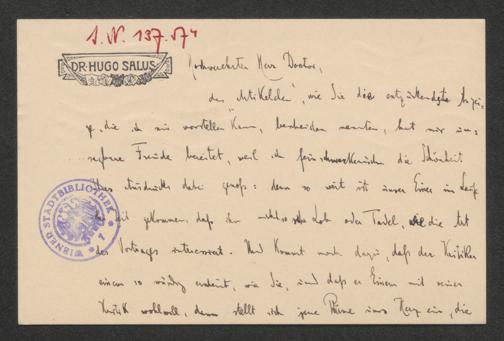 I. N. 137.574
DR. HUGO SALUS.
Hochverehrter Herr Doctor,
das "Artikelchen", wie Sie diese entzückendste Anzei-
ge, die ich mir vorstellen kann, bescheiden nennen, hat mir un-
Freude bereitet, weil ich feinschmeckerisch die Schönheit
Ihres dabei genoß: denn so weit ist unser Einer im Laufe
der Zeit gekommen, daß ihn nicht so sehr Lob oder Tadel, die Art
des Vortrages interessert. Und kommt noch dazu, daß der Kritiker
einem so würdig erscheint, wie Sie, und daß er Einem mit seiner
Kritik wohlwill, dann stellt sich jene Wärme ums Herz ein, die
WIENER STADTBIBLIOTHEK